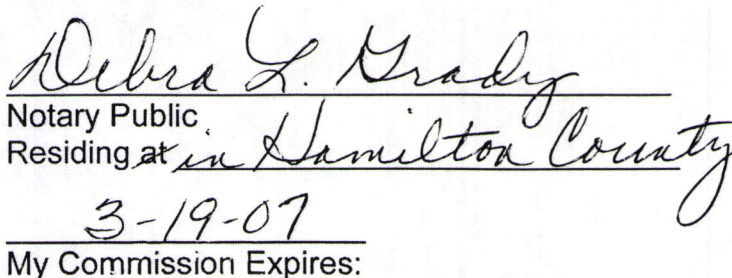 Debra L. Grady
Notary Public
Residing at in Hamilton County
3-19-07
My Commission Expires: